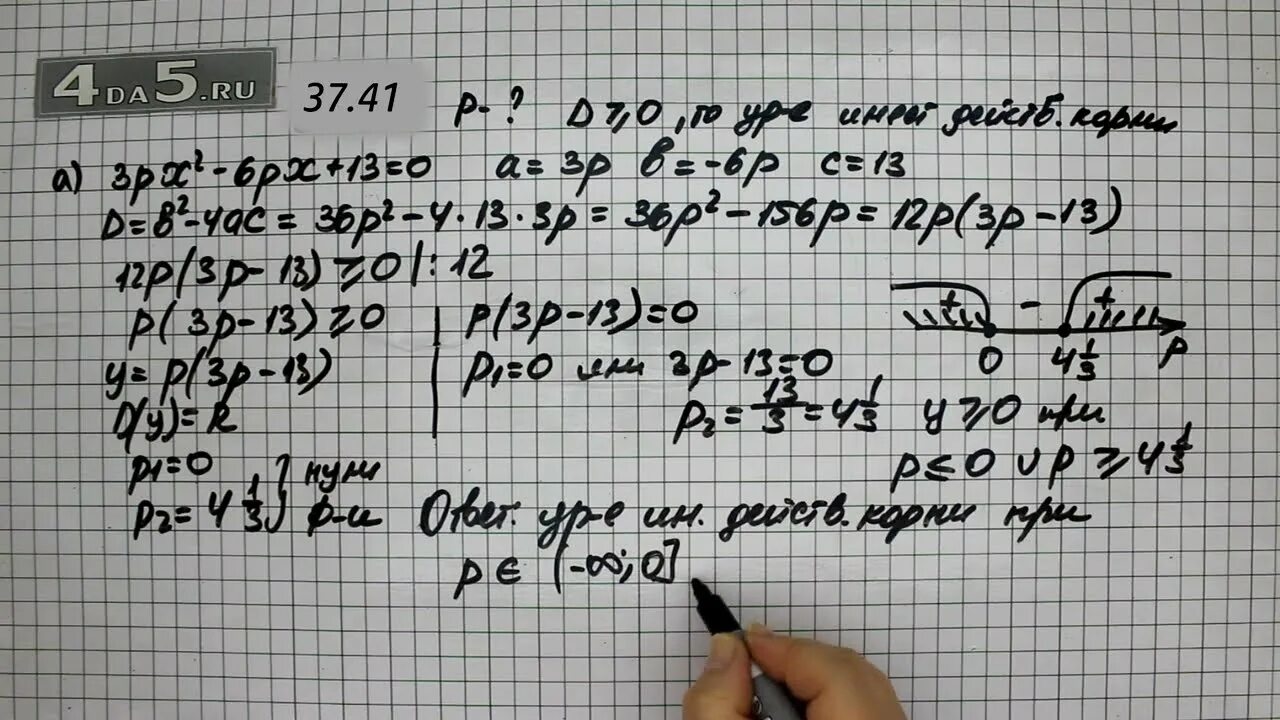 4DA5.RU
37.41
p-? D⩾0, то ур-е имеет действ. корни
а) 3px²-6px+13=0 a=3p в=-6p c=13
D=в²-4ac=36p²-4·13·3p=36p²-156p=12p(3p-13)
12p(3p-13)⩾0|:12
p(3p-13)⩾0
y=p(3p-13)
D(y)=R
p₁=0
p₂=4 1/3
нули
ф-и
p(3p-13)=0
p₁=0 или 3p-13=0
p₂=13/3=4 1/3
+ - +
0 4 1/3 p
y⩾0 при
p≤0 ∪ p⩾4 1/3
Ответ. ур-е им. действ. корни при
p∈(-∞;0]